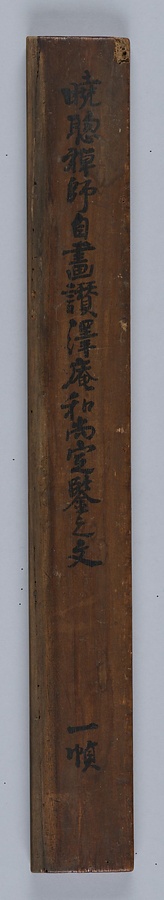 曉聰禪師自畫讃澤庵和尚定鑒之文
一幀